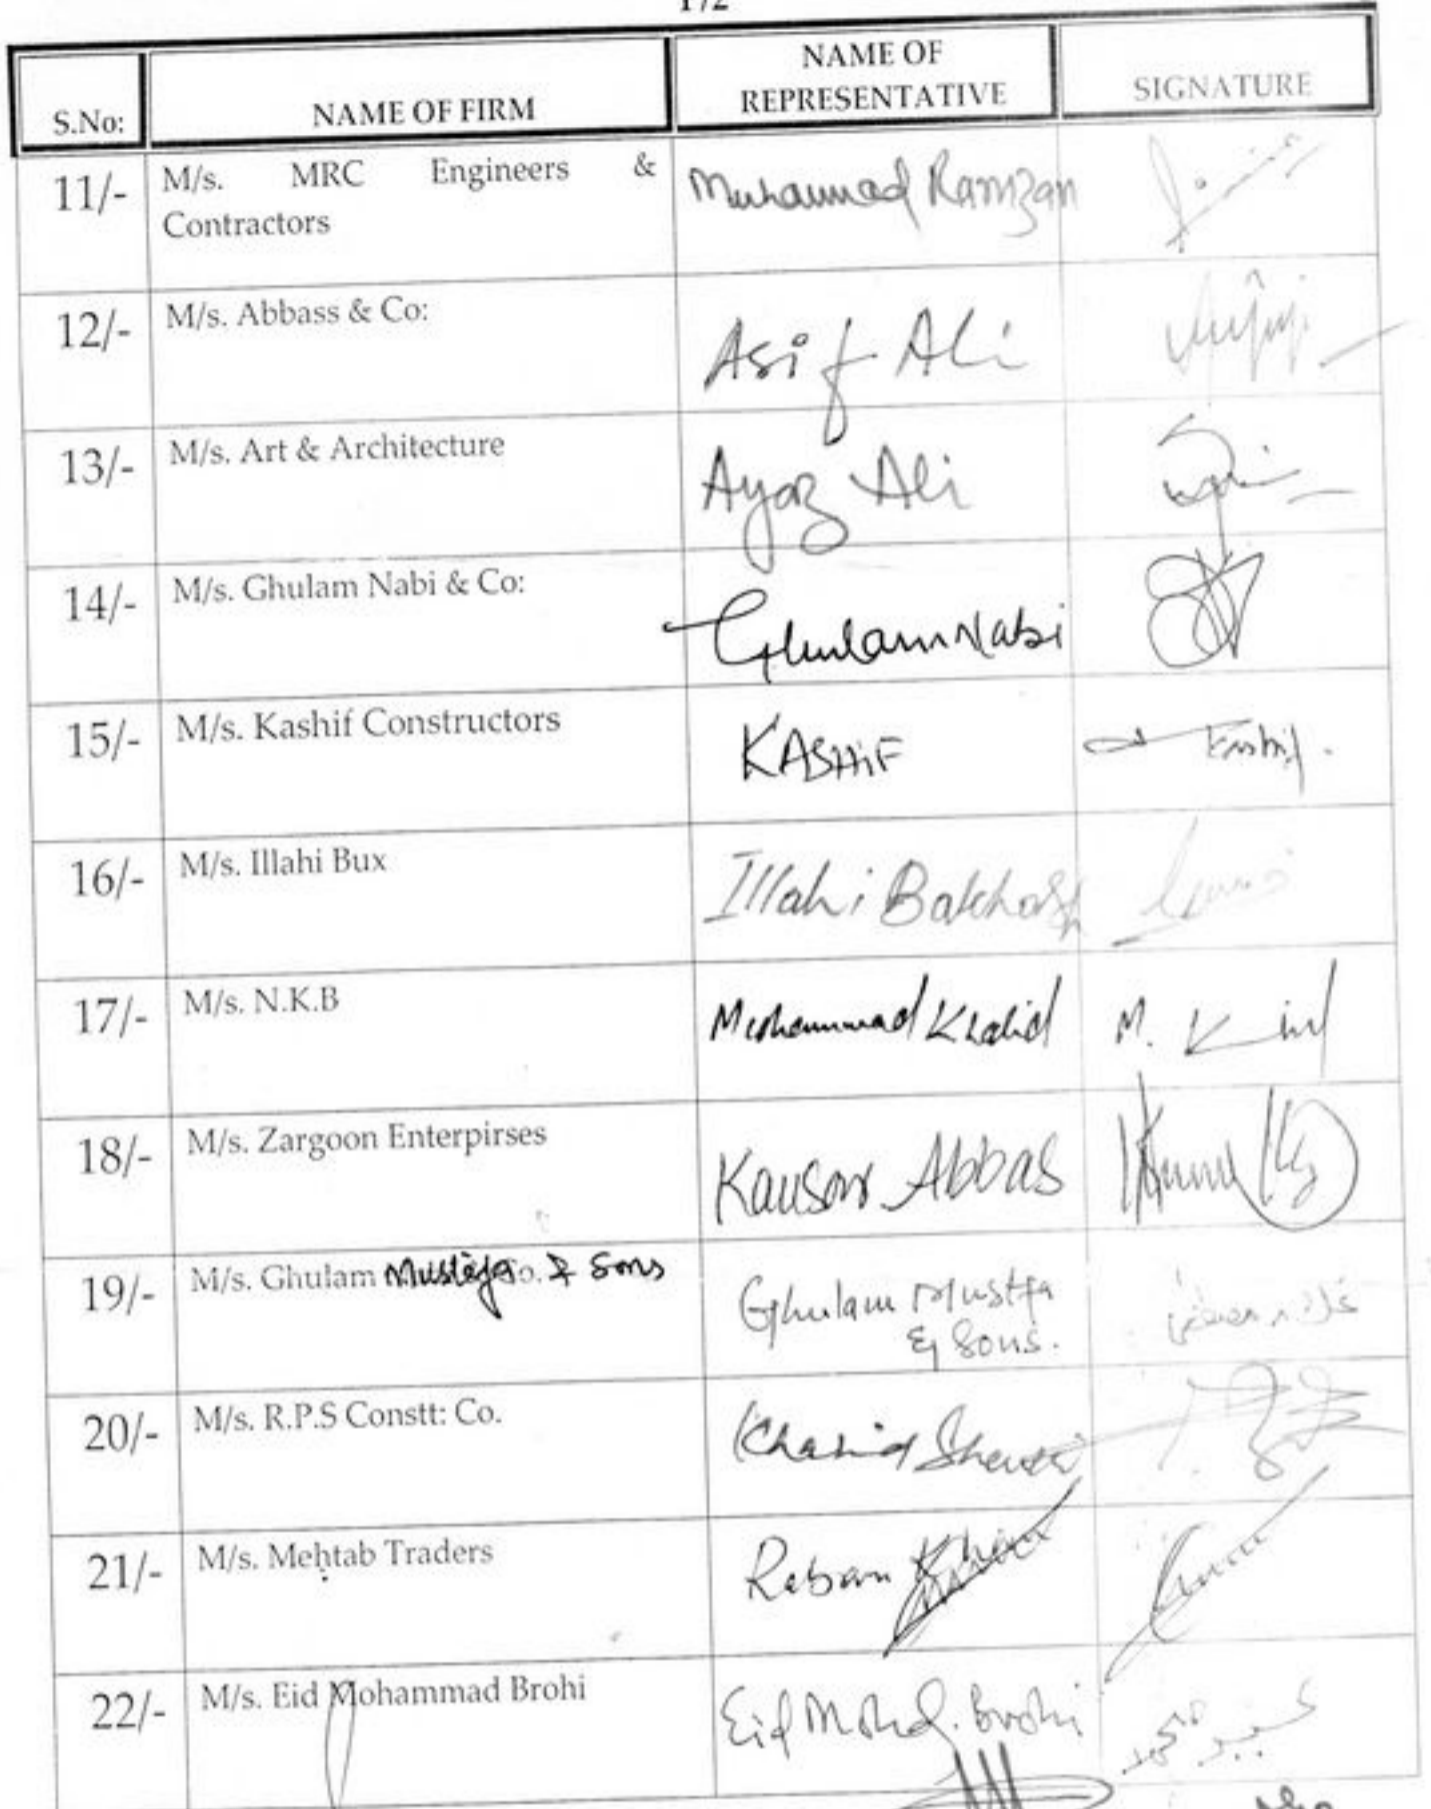 S.No:
NAME OF FIRM
NAME OF
REPRESENTATIVE
SIGNATURE
11/-
M/s. MRC Engineers &
Contractors
Muhammad Ramzan
12/-
M/s. Abbass & Co:
Asif Ali
13/-
M/s. Art & Architecture
Ayaz Ali
14/-
M/s. Ghulam Nabi & Co:
Ghulam Nabi
15/-
M/s. Kashif Constructors
KASHiF
Kashif.
16/-
M/s. Illahi Bux
Illahi Bakhash
17/-
M/s. N.K.B
Muhammad Khalid
M.
18/-
M/s. Zargoon Enterpirses
Kausar Abbas
19/-
M/s. Ghulam Mustafa & Sons
Ghulam Mustfa
& Sons.
غلام مصطفیٰ
20/-
M/s. R.P.S Constt: Co.
Khalid
21/-
M/s. Mehtab Traders
Khan
22/-
M/s. Eid Mohammad Brohi
Eid Mohd. Brohi